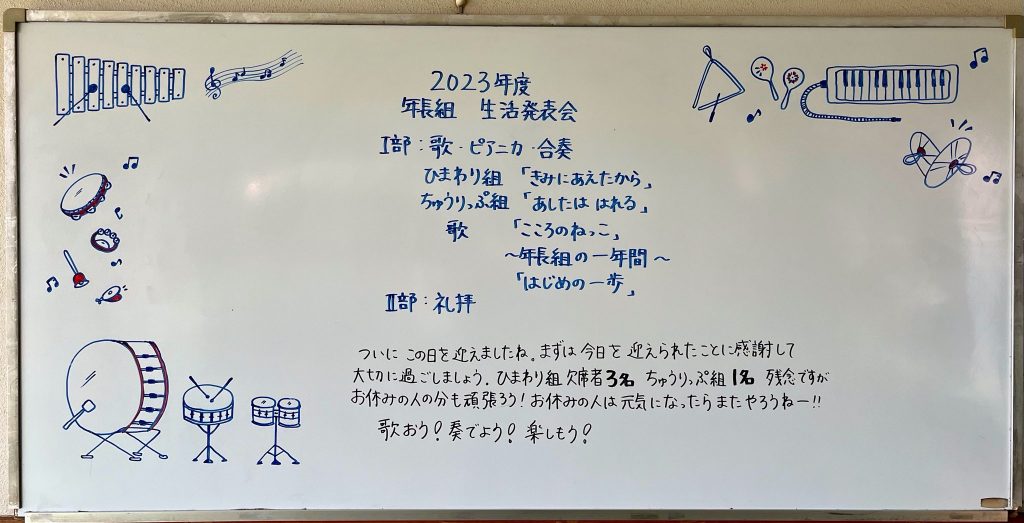 2023年度
年長組 生活発表会
Ⅰ部:歌・ピアニカ・合奏
ひまわり組 「きみにあえたから」
ちゅうりっぷ組 「あしたは はれる」
歌 「こころのねっこ」
～年長組の一年間～
「はじめの一歩」
Ⅱ部:礼拝
ついに この日を迎えましたね。まずは 今日を 迎えられたことに感謝して
大切に過ごしましょう。ひまわり組 欠席者3名 ちゅうりっぷ組 1名 残念ですが
お休みの人の分も頑張ろう! お休みの人は元気になったらまたやろうねー!!
歌おう! 奏でよう! 楽しもう!